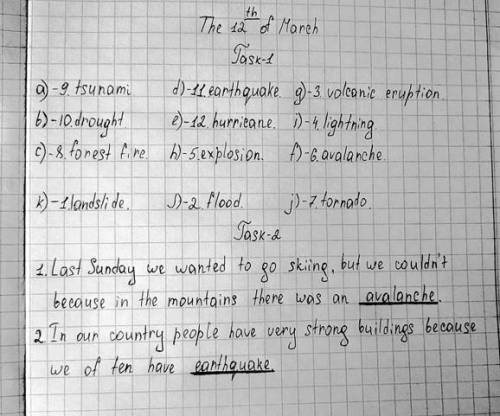 The 12th of March
Task-1
a)-9.tsunami d)-11.earthquake. g)-3.volcanic eruption
b)-10.drought e)-12.hurricane. i)-4.lightning
c)-8.forest fire. h)-5.explosion. f)-6.avalanche.
k)-1.landslide. l)-2.flood. j)-7.tornado.
Task-2
1. Last Sunday we wanted to go skiing, but we couldn't
because in the mountains there was an avalanche.
2. In our country people have very strong buildings because
we of ten have earthquake.